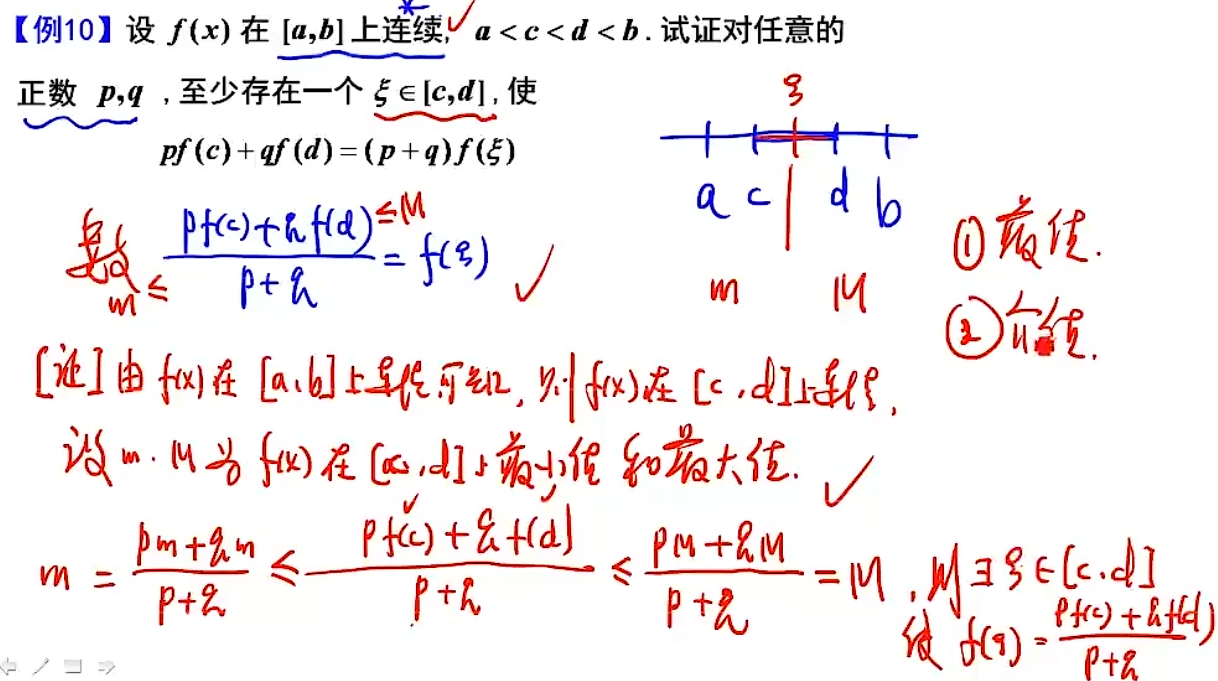 【例10】设 f(x) 在 [a,b] 上连续, a<c<d<b. 试证对任意的
正数 p,q ,至少存在一个 ξ∈[c,d], 使
pf(c)+qf(d)=(p+q)f(ξ)
ξ
a c d b
m M
m ≤ (pf(c)+qf(d))/(p+q) ≤M = f(ξ)
① 最值.
② 介值.
[证] 由 f(x) 在 [a,b] 上连续可知, 则 f(x) 在 [c,d] 上连续,
设 m. M 为 f(x) 在 [c,d] 上最小值和最大值.
m = (pm+qm)/(p+q) ≤ (pf(c)+qf(d))/(p+q) ≤ (pM+qM)/(p+q) = M , 则 ∃ξ∈[c.d]
使 f(ξ) = (pf(c)+qf(d))/(p+q)